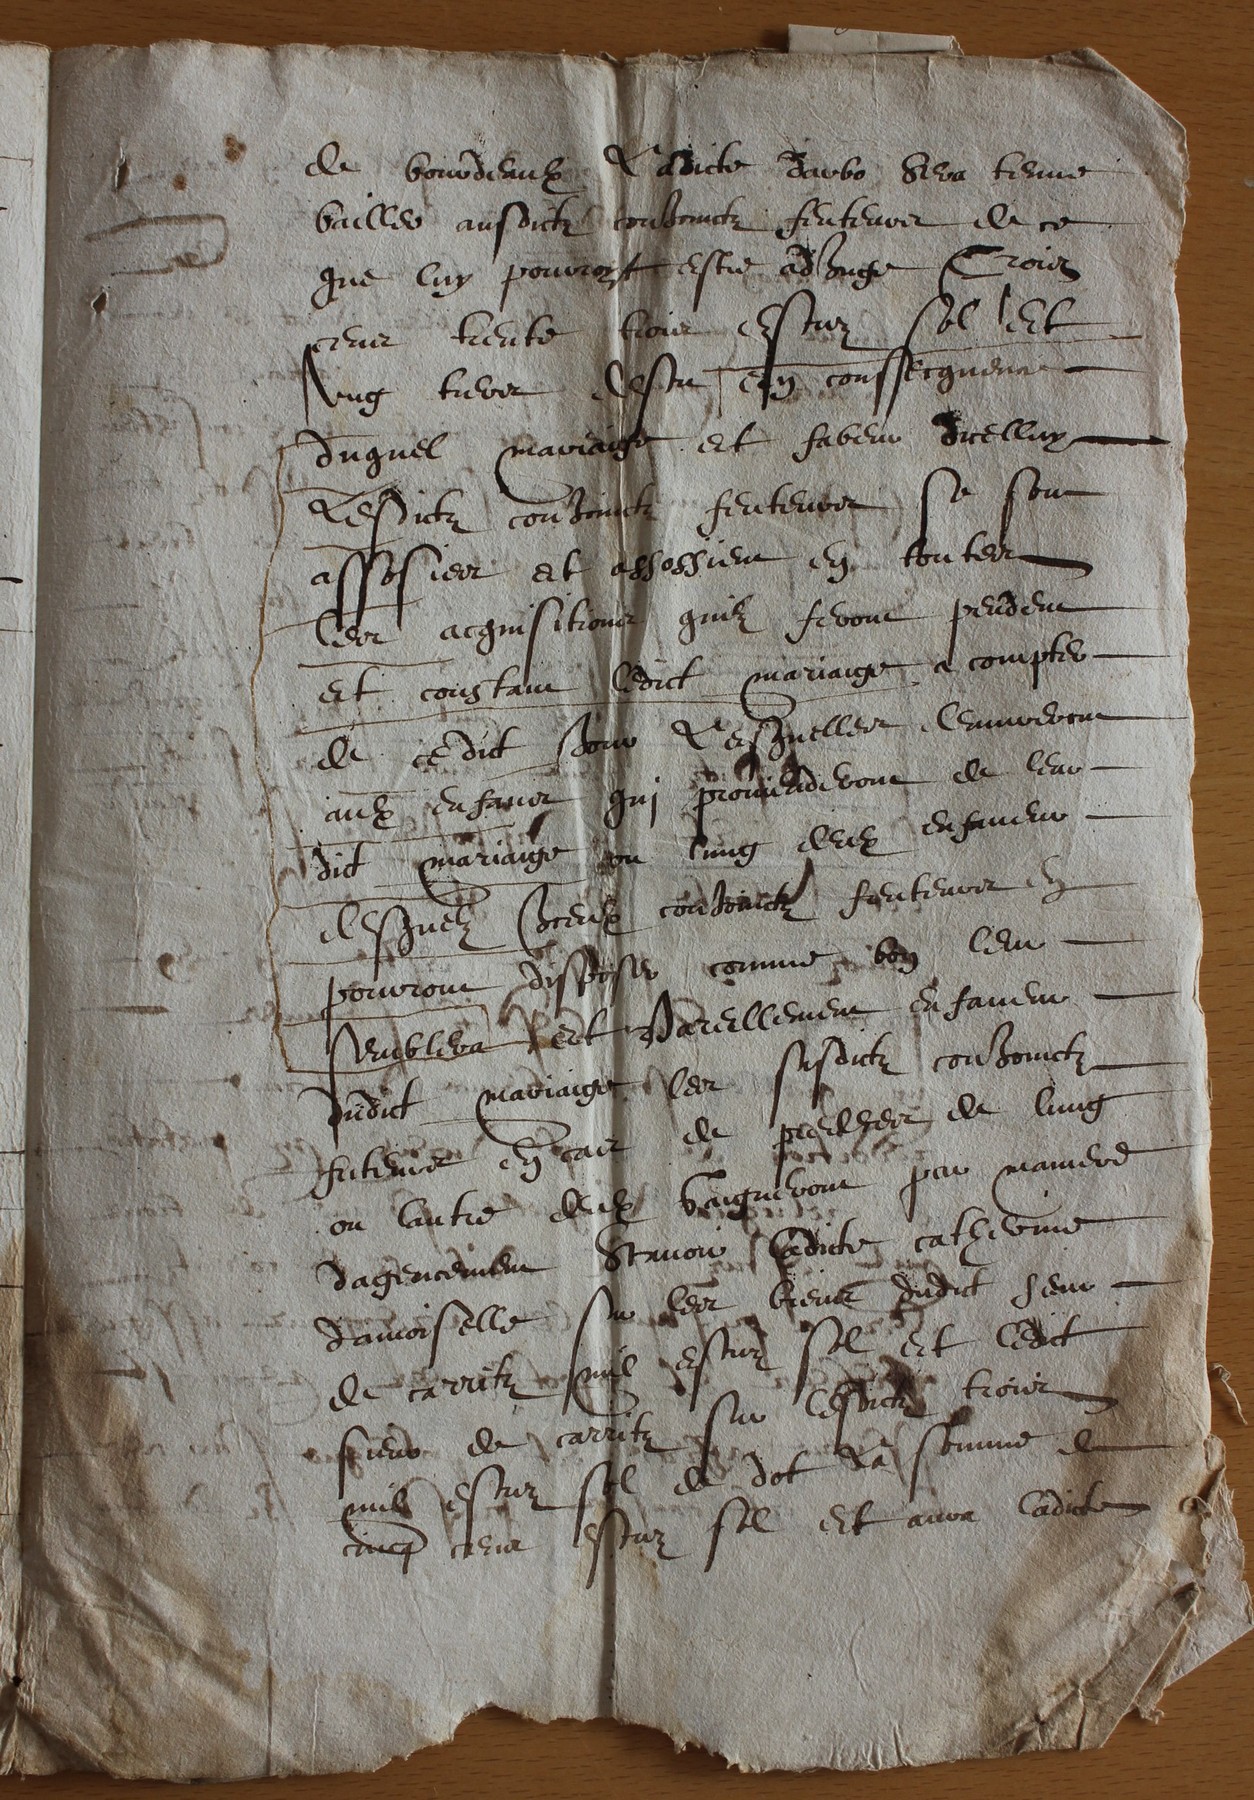 de bourdeaulx Ladicte Darbo sera tenue
bailler ausdictz conJoinctz feuteurs de ce
que luy pourroyt estre adJuge Trois
cens trente trois escuz sol et
ung tiers descu en conssecquence
duquel mariaige et fabeur dicelluy
Lesdictz conJoinctz feuteurs se sont
assosies et assossient en toutes
les acquisitions quilz feront pendent
et constant ledict mariaige a compter
de cedict Jour Lesquelles demureront
aulx enfans qui proviendront de leur
dict mariaige ou lung deulx enfaveur
desquelz Iceulx conJoinctz feuteurs en
pourront disposer comme bon leur
semblera et Pareillement enfaveur
dudict mariaige les susdictz conJoinctz
futeurs en cas de predeces de lung
ou lautre deulx gaigneront par maniere
dagencement Scavoir Ladicte catherine
damoiselle sur les biens dudict sieur
de carritz mil escuz sol et ledict
sieur de carritz sur lesdictz trois
mil escuz sol de dot La somme de
cincq cens escuz sol et aura Ladicte